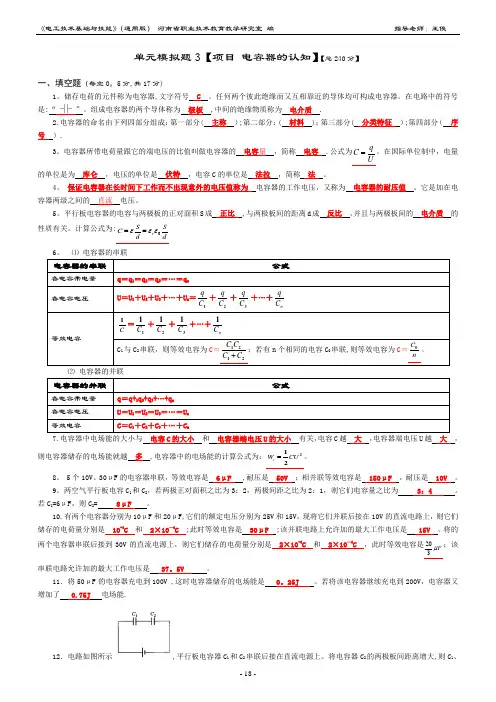 《电工技术基础与技能》(通用版) 河南省职业技术教育教学研究室 编 指导老师:王俊
单元模拟题3【项目 电容器的认知】【总240分】
一、填空题(每空0。5分,共17分)
1。储存电荷的元件称为电容器,文字符号 C 。任何两个彼此绝缘而又互相靠近的导体均可构成电容器。在电路中的符号
是:“ ⊣⊢ ”。组成电容器的两个导体称为 极板 ,中间的绝缘物质称为 电介质 .
2.电容器的命名由下列四部分组成:第一部分( 主称 );第二部分:( 材料 );第三部分( 分类特征 );第四部分( 序
号 ).
3。电容器所带电荷量跟它的端电压的比值叫做电容器的 电容量 ,简称 电容 .公式为 C = q/U 。在国际单位制中,电量
的单位是为 库仑 ,电压的单位是 伏特 ,电容C的单位是 法拉 ,简称 法 。
4。 保证电容器在长时间下工作而不出现意外的电压值称为 电容器的工作电压,又称为 电容器的耐压值 。它是加在电
容器两级之间的 直流 电压。
5。平行板电容器的电容与两极板的正对面积S成 正比 ,与两极板间的距离d成 反比 ,并且与两极板间的 电介质 的
性质有关。计算公式为: C = ε S/d = ε_r ε_0 S/d
6。 ⑴ 电容器的串联
电容器的串联 公式
各电容器带电量 q=q₁=q₂=q₃=…=qₙ
各电容电压 U=U₁+U₂+U₃+…+Uₙ= q/C₁ + q/C₂ + q/C₃ +…+ q/Cₙ
等效电容 1/C = 1/C₁ + 1/C₂ + 1/C₃ +…+ 1/Cₙ
C₁与C₂串联,则等效电容为C= C₁C₂/(C₁+C₂) ;若有n个相同的电容C₀串联,则等效电容为C= C₀/n 。
⑵ 电容器的并联
电容器的并联 公式
各电容器带电量 q=q₁+q₂+q₃+…+qₙ
各电容电压 U=U₁=U₂=U₃=……=Uₙ
等效电容 C=C₁+C₂+C₃+…+Cₙ
7.电容器中电场能的大小与 电容C的大小 和 电容器端电压U的大小 有关,电容C越 大 ,电容器端电压U越 大 ,
则电容器储存的电场能就越 多 .电容器中的电场能的计算公式为: W_c = 1/2 CU² 。
8。 5个10V、30μF的电容器串联,等效电容是 6μF ,耐压是 50V ;相并联等效电容是 150μF ,耐压是 10V 。
9。两空气平行板电容C₁和C₂,若两极正对面积之比为3:2,两极间距之比为2:1,则它们电容量之比为 3:4 .
若C₁=6μF,则C₂= 8μF 。
10.有两个电容器分别为10μF和20μF,它们的额定电压分别为25V和15V。现将它们并联后接在10V的直流电路上,则它们
储存的电荷量分别是 10⁻⁴C 和 2×10⁻⁴C ;此时等效电容是 30μF ;该并联电路上允许加的最大工作电压是 15V 。将的
两个电容器串联后接到30V的直流电源上,则它们储存的电荷量分别是 2×10⁻⁴C 和 2×10⁻⁴C ,此时等效电容是 20/3 μF ;该
串联电路允许加的最大工作电压是 37。5V 。
11.将50μF的电容器充电到100V ,这时电容器储存的电场能是 0。25J 。若将该电容器继续充电到200V,电容器又
增加了 0.75J 电场能.
C₁ C₂
12.电路如图所示 ,平行板电容器C₁和C₂串联后接在直流电源上。将电容器C₂的两极板间距离增大,则C₁、
- 18 -